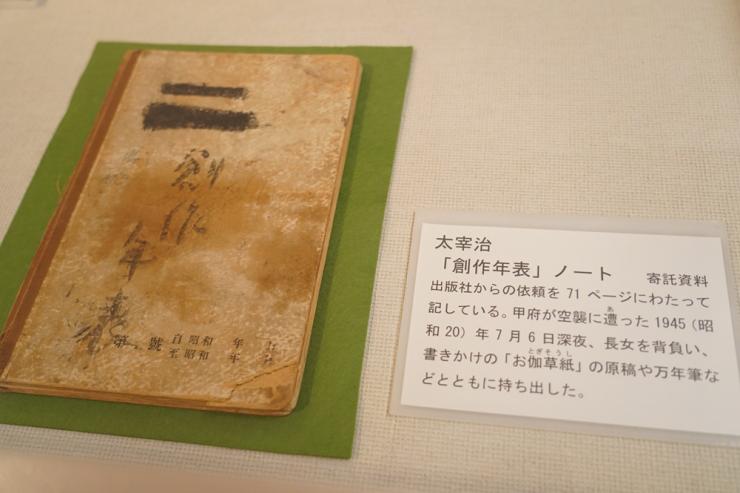 創作
年表
第 號 自昭和 年
至昭和 年
太宰治
「創作年表」ノート 寄託資料
出版社からの依頼を 71 ページにわたって
記している。甲府が空襲に遭った 1945（昭
和 20）年 7 月 6 日深夜、長女を背負い、
書きかけの「お伽草紙」の原稿や万年筆な
どとともに持ち出した。
あ
とぎぞうし